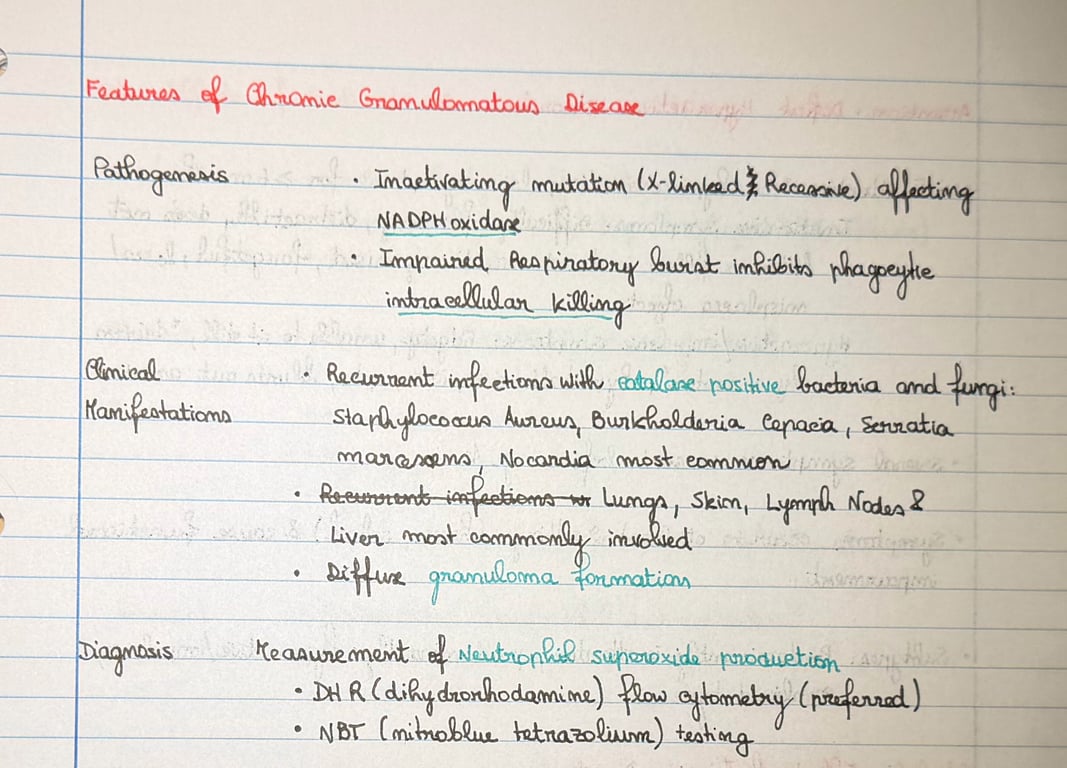 Features of Chronic Granulomatous Disease
Pathogenesis • Inactivating mutation (X-linked & Recessive) affecting
NADPH oxidase
• Impaired Respiratory burst inhibits phagocytic
intracellular killing
Clinical • Recurrent infections with catalase positive bacteria and fungi:
Manifestations Staphylococcus Aureus, Burkholderia Cepacia, Serratia
marcescens, Nocardia most common
• Recurrent infections w Lungs, Skin, Lymph Nodes &
Liver most commonly involved
• Diffuse granuloma formations
Diagnosis Measurement of Neutrophil superoxide production
• DHR (dihydrorhodamine) flow cytometry (preferred)
• NBT (nitroblue tetrazolium) testing